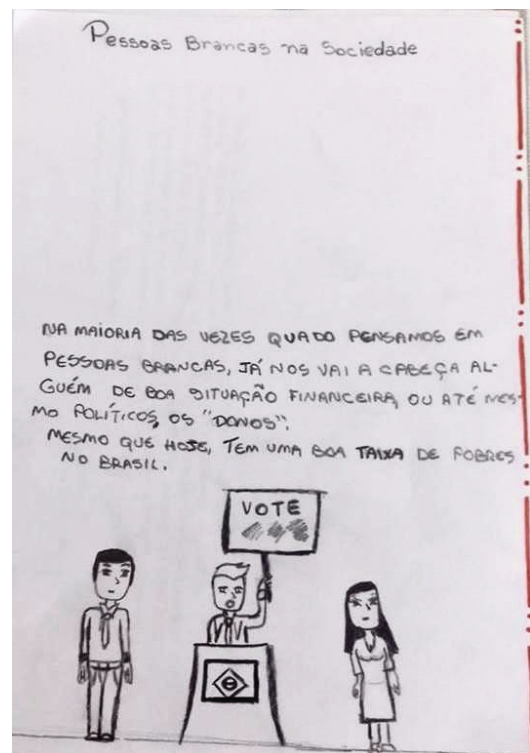 Pessoas Brancas na Sociedade
NA MAIORIA DAS VEZES QUADO PENSAMOS EM
PESSOAS BRANCAS, JÁ NOS VAI A CABEÇA AL-
GUÉM DE BOA SITUAÇÃO FINANCEIRA, OU ATÉ MES-
MO POLÍTICOS, OS "DONOS".
MESMO QUE HOJE, TEM UMA BOA TAIXA DE POBRES
NO BRASIL.
VOTE